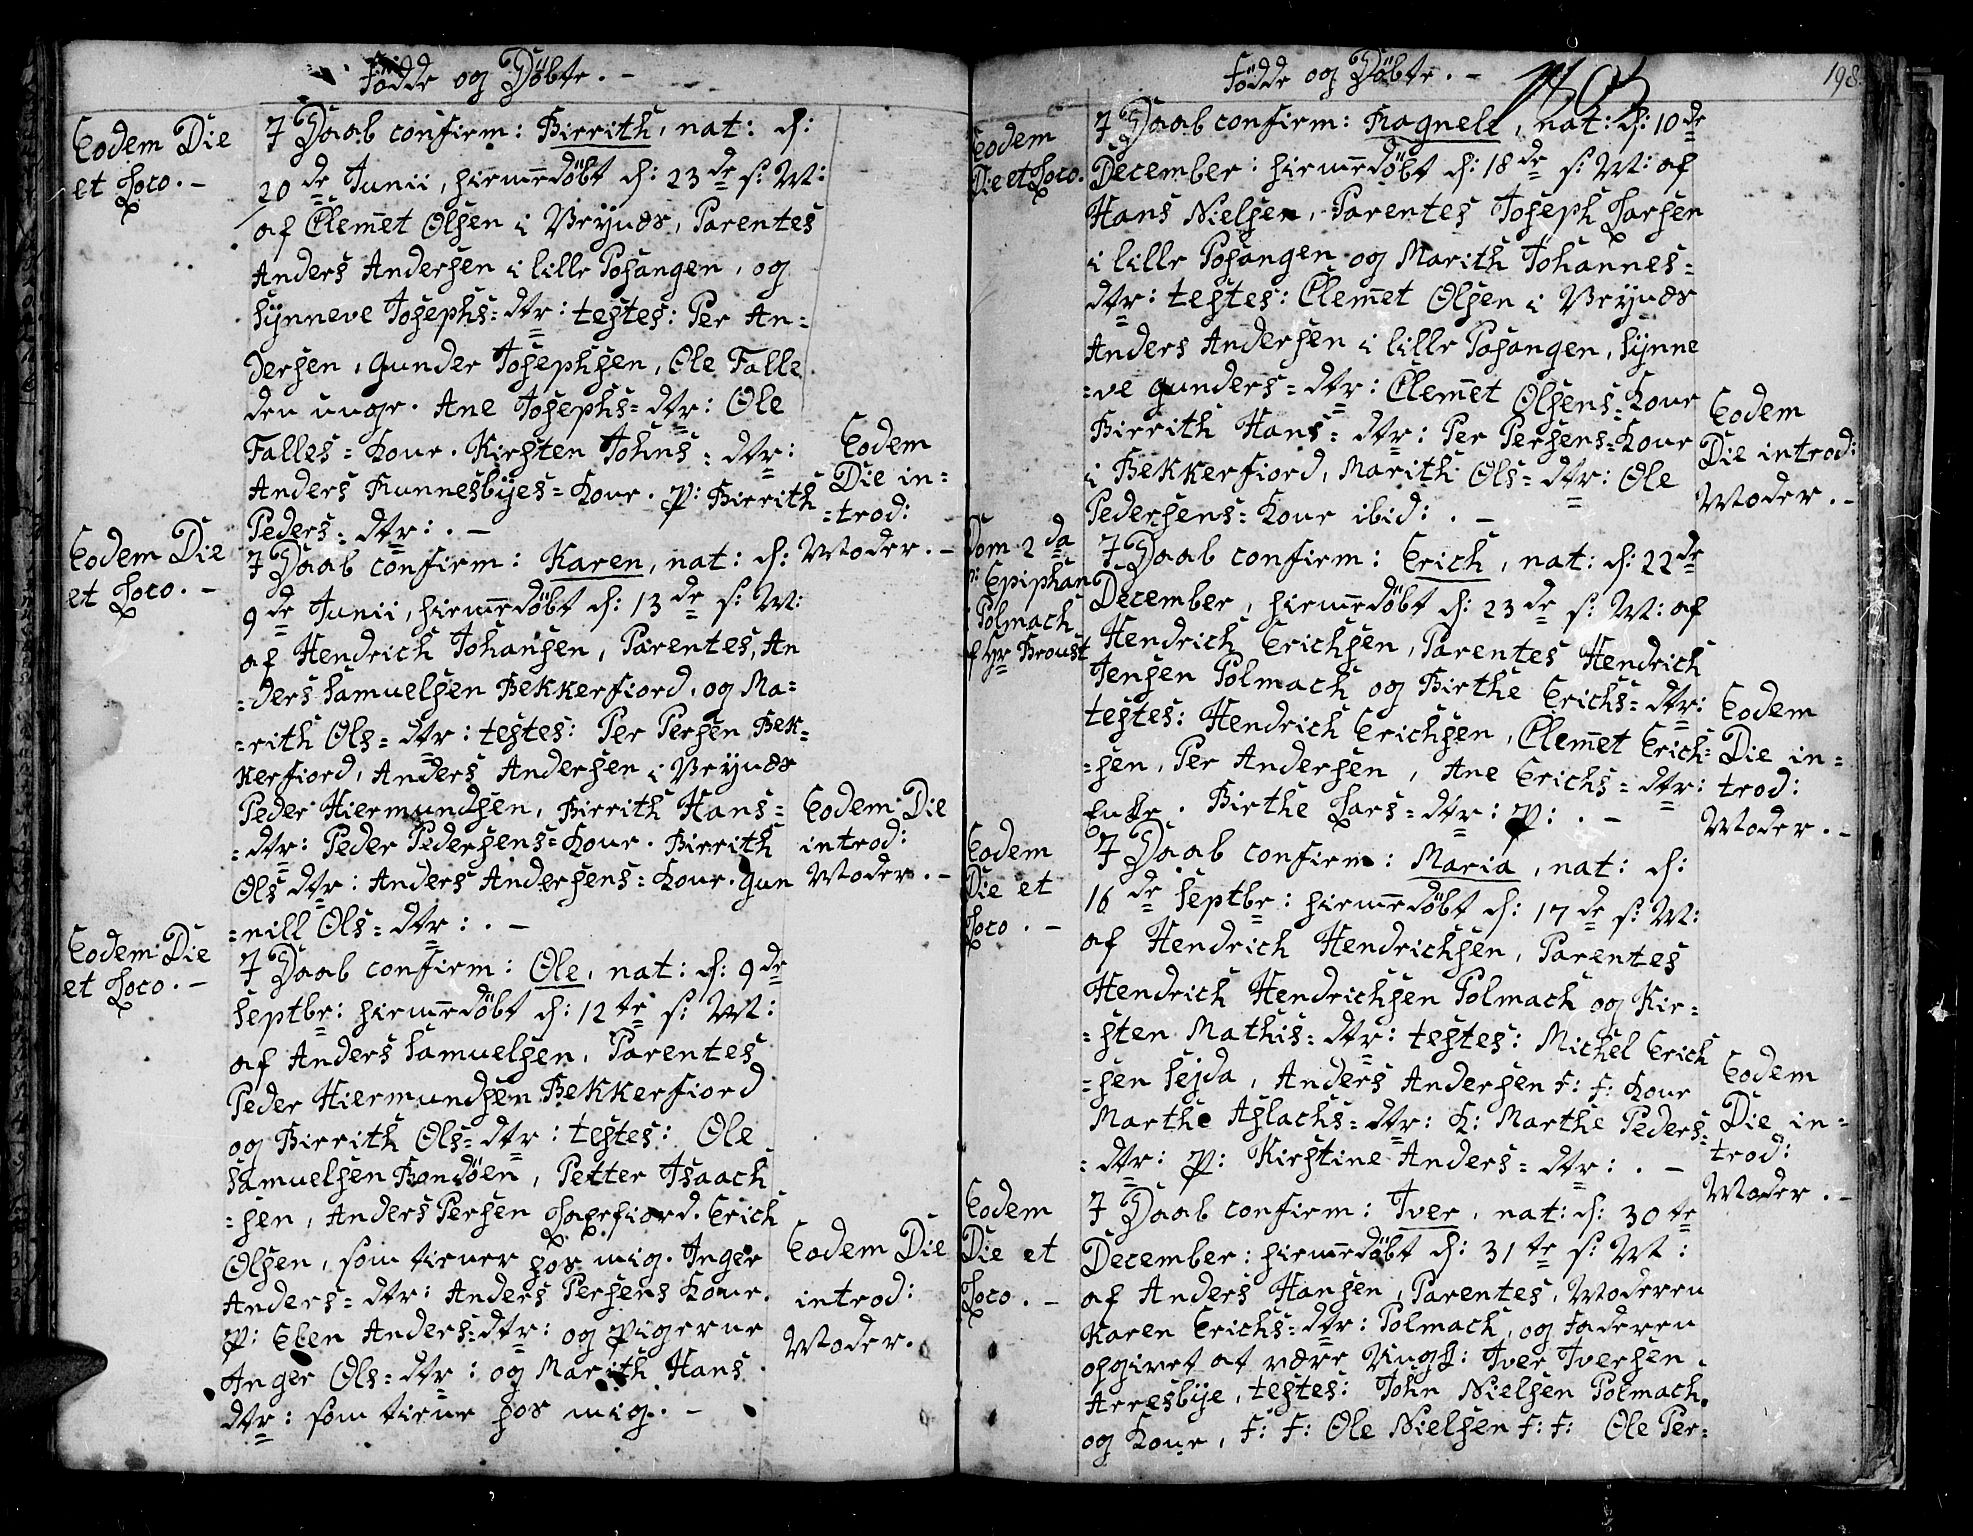 Fødde og Døbte. -
Eodem Die
et Loco. -
J Daab confirm: Birrith, nat: d:
20de Junii, hiemmedøbt d: 23de s: M:
af Clemet Olsen i Brynds, Parentes
Anders Andersen i lille Posangen, og
Synneve Josephs=dtr: testes: Per An=
dersen, Gunder Josephsen, Ole Falle
den unge. Ane Josephs=dtr: Ole
Falles=Kone. Kirsten Johns=dtr:
Anders Kunnesbyes=Kone. P: Birrith
Peders=dtr: . -
Eodem
Die in=
=trod:
Moder. -
Eodem Die
et Loco. -
J Daab confirm: Karen, nat: d:
9de Junii, hiemmedøbt d: 13de s: M:
af Hendrich Johansen, Parentes, An
=ders Samuelsen Bekkerfiord, og Ma=
=rith Ols=dtr: testes: Per Persen Bek=
kerfiord, Anders Andersen i Brynds
Peder Hiermundsen, Birrith Hans=
=dtr: Peder Pedersens=Kone. Birrith
Ols dtr: Anders Andersens=Kone. Gun
=nill Ols=dtr: . -
Eodem Die
introd:
Moder. -
Eodem Die
et Loco. -
J Daab confirm: Ole, nat: d: 9de
Septbr: hiemmedøbt d: 12te s: M:
af Anders Samuelsen, Parentes
Peder Hiermundsen Bekkerfiord
og Birrith Ols=dtr: testes: Ole
Samuelsen Bondøen, Petter Isaach
=sen, Anders Persen Laxefiord. Erich
Olsen, som tiener hos mig. Inger
Anders=dtr: Anders Persens Kone.
P: Elen Anders=dtr: og Pigerne
Inger Ols=dtr: og Marith Hans
dtr: som tiene hos mig. -
Eodem Die
introd:
Moder.
Fødde og Døbte. -
198
Eodem
Die et Loco.
J Daab confirm: Ragnele, nat: d: 10de
December: hiemmedøbt d: 18de s: M: af
Hans Nielsen, Parentes Joseph Larsen
i lille Posangen og Marith Johannes=
dtr: testes: Clemet Olsen i Brynds
Anders Andersen i lille Posangen, Synne
=ve Gunders=dtr: Clemet Olsens=Kone
Birrith Hans=dtr: Per Persens=Kone
i Bekkerfiord, Marith Ols=dtr: Ole
Pedersens=Kone ibid: . -
Eodem
Die introd:
Moder. -
Dom 2da
p: Epiphan
Polmach
J Daab confirm: Erich, nat: d: 22de
December, hiemmedøbt d: 23de s: M: af
Hendrich Erichsen, Parentes Hendrich
Jensen Polmach og Birthe Erichs=dtr:
testes: Hendrich Erichsen, Clemet Erich=
=sen, Per Andersen, Ane Erichs=dtr:
Enke. Birthe Lars=dtr: P: . -
Eodem
Die in=
trod:
Moder. -
Eodem
Die et
Loco. -
J Daab confirm: Maria, nat: d:
16de Septbr: hiemmedøbt d: 17de s: M:
af Hendrich Hendrichsen, Parentes
Hendrich Hendrichsen Polmach og Kir=
=sten Mathis=dtr: testes: Michel Erich
=sen Sejda, Anders Andersen F: F: Kone
Marthe Aslachs=dtr: K: Marthe Peders=
=dtr: P: Kirstine Anders=dtr: . -
Eodem
Die in=
trod:
Moder. -
Eodem
Die et
Loco. -
J Daab confirm: Iver, nat: d: 30te
December: hiemmedøbt d: 31te s: M:
af Anders Hansen, Parentes, Moderen
Karen Erichs=dtr: Polmach, og Faderen
opgivet at være Ungk: Iver Iversen
Arresbye, testes: John Nielsen Polmach,
og Kone, F: F: Ole Nielsen F: F: Ole Per=